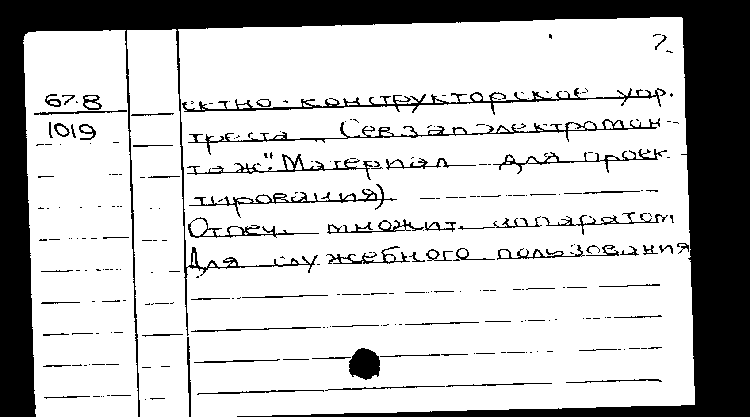 2.
67-8
1019
ектно-конструкторское упр.
треста „Севзапэлектромон-
таж". Материал для проек-
тирования).
Отпеч. множит. аппаратом
Для служебного пользования